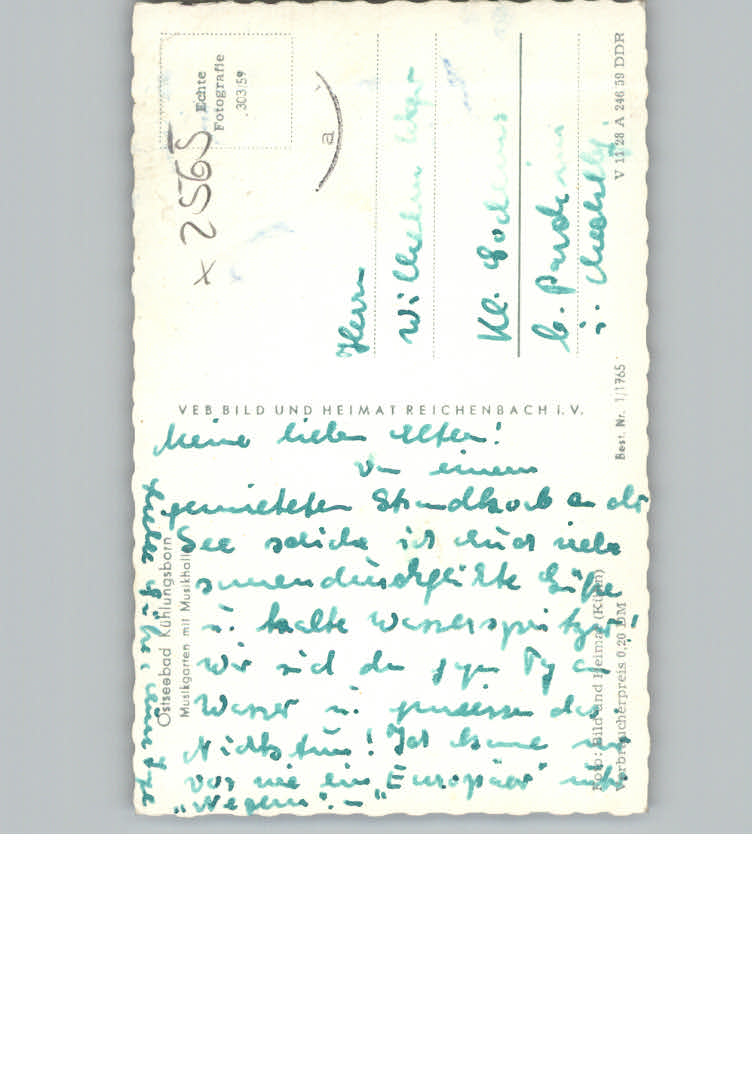 Echte
Fotografie
303/59
x 2565
a
Herrn
Wilhelm
Kl.
b.
i.
V 11 28 A 246 59 DDR
VEB BILD UND HEIMAT REICHENBACH i. V.
Best. Nr. 1/1765
Meine lieben Eltern!
Von einem
gemieteten Strandkorb an der
See schicke ich Euch viele
sonnendurchglühte Grüße
u. kalte Wasserspritzer!
Wir sind den ganzen Tag am
Wasser u. geniessen das
Nichtstun! Ich komme mir
vor wie ein "Europäer" unter
"Negern". –
Ostseebad Kühlungsborn
Musikgarten mit Musikhalle
Foto: Bild und Heimat (Kühn)
Verbraucherpreis 0,20 DM